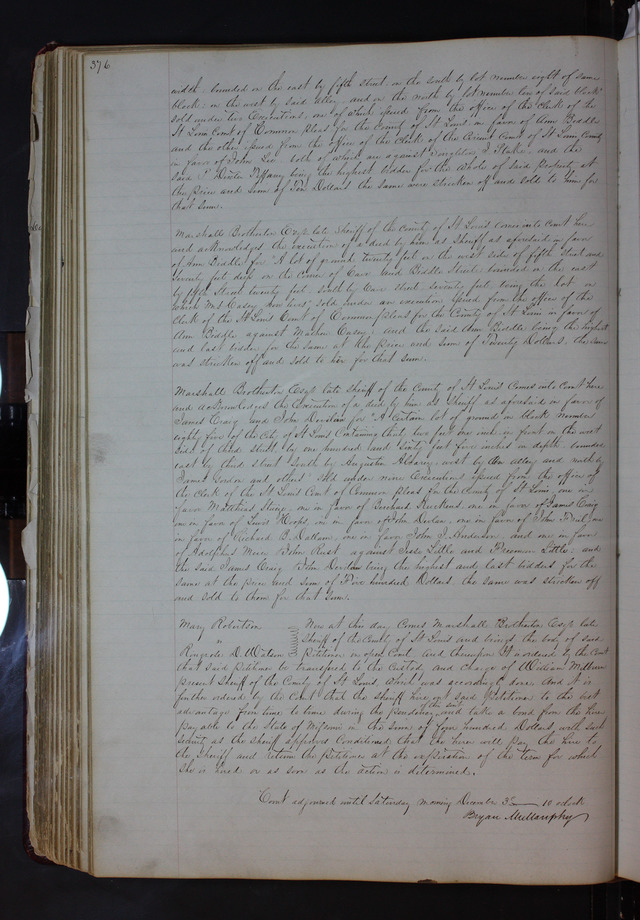 376
width bounded on the east by fifth street on the south by lot number eight of same
block: on the west by said alley and on the north by lot number ten of said block
sold under two executions, one of which issued from the office of the Clerk of the
St Louis Court of Common pleas for the County of St Louis in favor of Ann Biddle
and the other issued from the office of the Clerk of the Circuit Court of St Louis County
in favor of John Lee both of which are against and the
said P. Dexter Tiffany being the highest bidder for the whole of said property at
the price and sum of Ten Dollars the same were stricken off and sold to him for
that sum.
Marshall Brotherton Esqr late Sheriff of the County of St Louis comes into Court here
and acknowledges the execution of a deed by him as Sheriff as aforesaid in favor
of Ann Biddle for "A lot of ground twenty feet on the west side of fifth Street and
seventy feet deep on the corner of Carr and Biddle Streets bounded on the east
by fifth Street twenty feet south by Carr street seventy feet being the lot on
which Mrs Casey now lives," sold under an execution issued from the office of the
Clerk of the St Louis Court of Common pleas for the County of St Louis in favor of
Ann Biddle against Casey: and the said Ann Biddle being the highest
and last bidder for the same at the price and sum of Twenty Dollars. the same
was stricken off and sold to her for that sum.
Marshall Brotherton Esqr late Sheriff of the County of St Louis Comes into Court here
and acknowledges the execution of a deed by him as Sheriff as aforesaid in favor of
James Craig and John Dourlan for "A certain lot of ground in block number
eighty five of the City of St Louis Containing thirty two feet inch in front on the west
side of third street by one hundred and sixty feet five inches in depth bounded
east by third street south by Augustin west by an alley and north by
James Gordon and others" sold under nine Executions issued from the office of
the Clerk of the St Louis Court of Common pleas for the County of St Louis one in
favor Matthias one in favor of Bernard one in favor of James Craig
one in favor of Lewis one in favor of John one in favor of John one
in favor of Richard B. Dallam one in favor John J. Anderson, and one in favor
of Adolphus Meier John Rust against Jesse Little and Freeman Little: and
the said James Craig John being the highest and last bidders for the
same at the price and sum of Five hundred Dollars the same was stricken off
and sold to them for that sum.
Mary Robertson Now at this day Comes Marshall Brotherton Esqr late
" Sheriff of the County of St Louis and brings the body of said
Ringrose D. Watson Petitioner in open Court and thereupon It is ordered by the Court
that said Petitioner be transferred to the Custody and charge of William Milburn
present Sheriff of the County of St Louis which was accordingly done. And it is
further ordered by the Court that the Sheriff hire out said Petitioner to the best
advantage from time to time during the pendency of this suit and take a bond from the hirer
payable to the State of Missouri in the sum of four hundred Dollars, with such
security as the Sheriff approves Conditioned that the hirer will pay the hire to
the Sheriff and return the Petitioner at the expiration of the term for which
She is hired or as soon as the action is determined.
Court adjourned until Saturday morning December 3d 10 oclock
Bryan Mullanphy